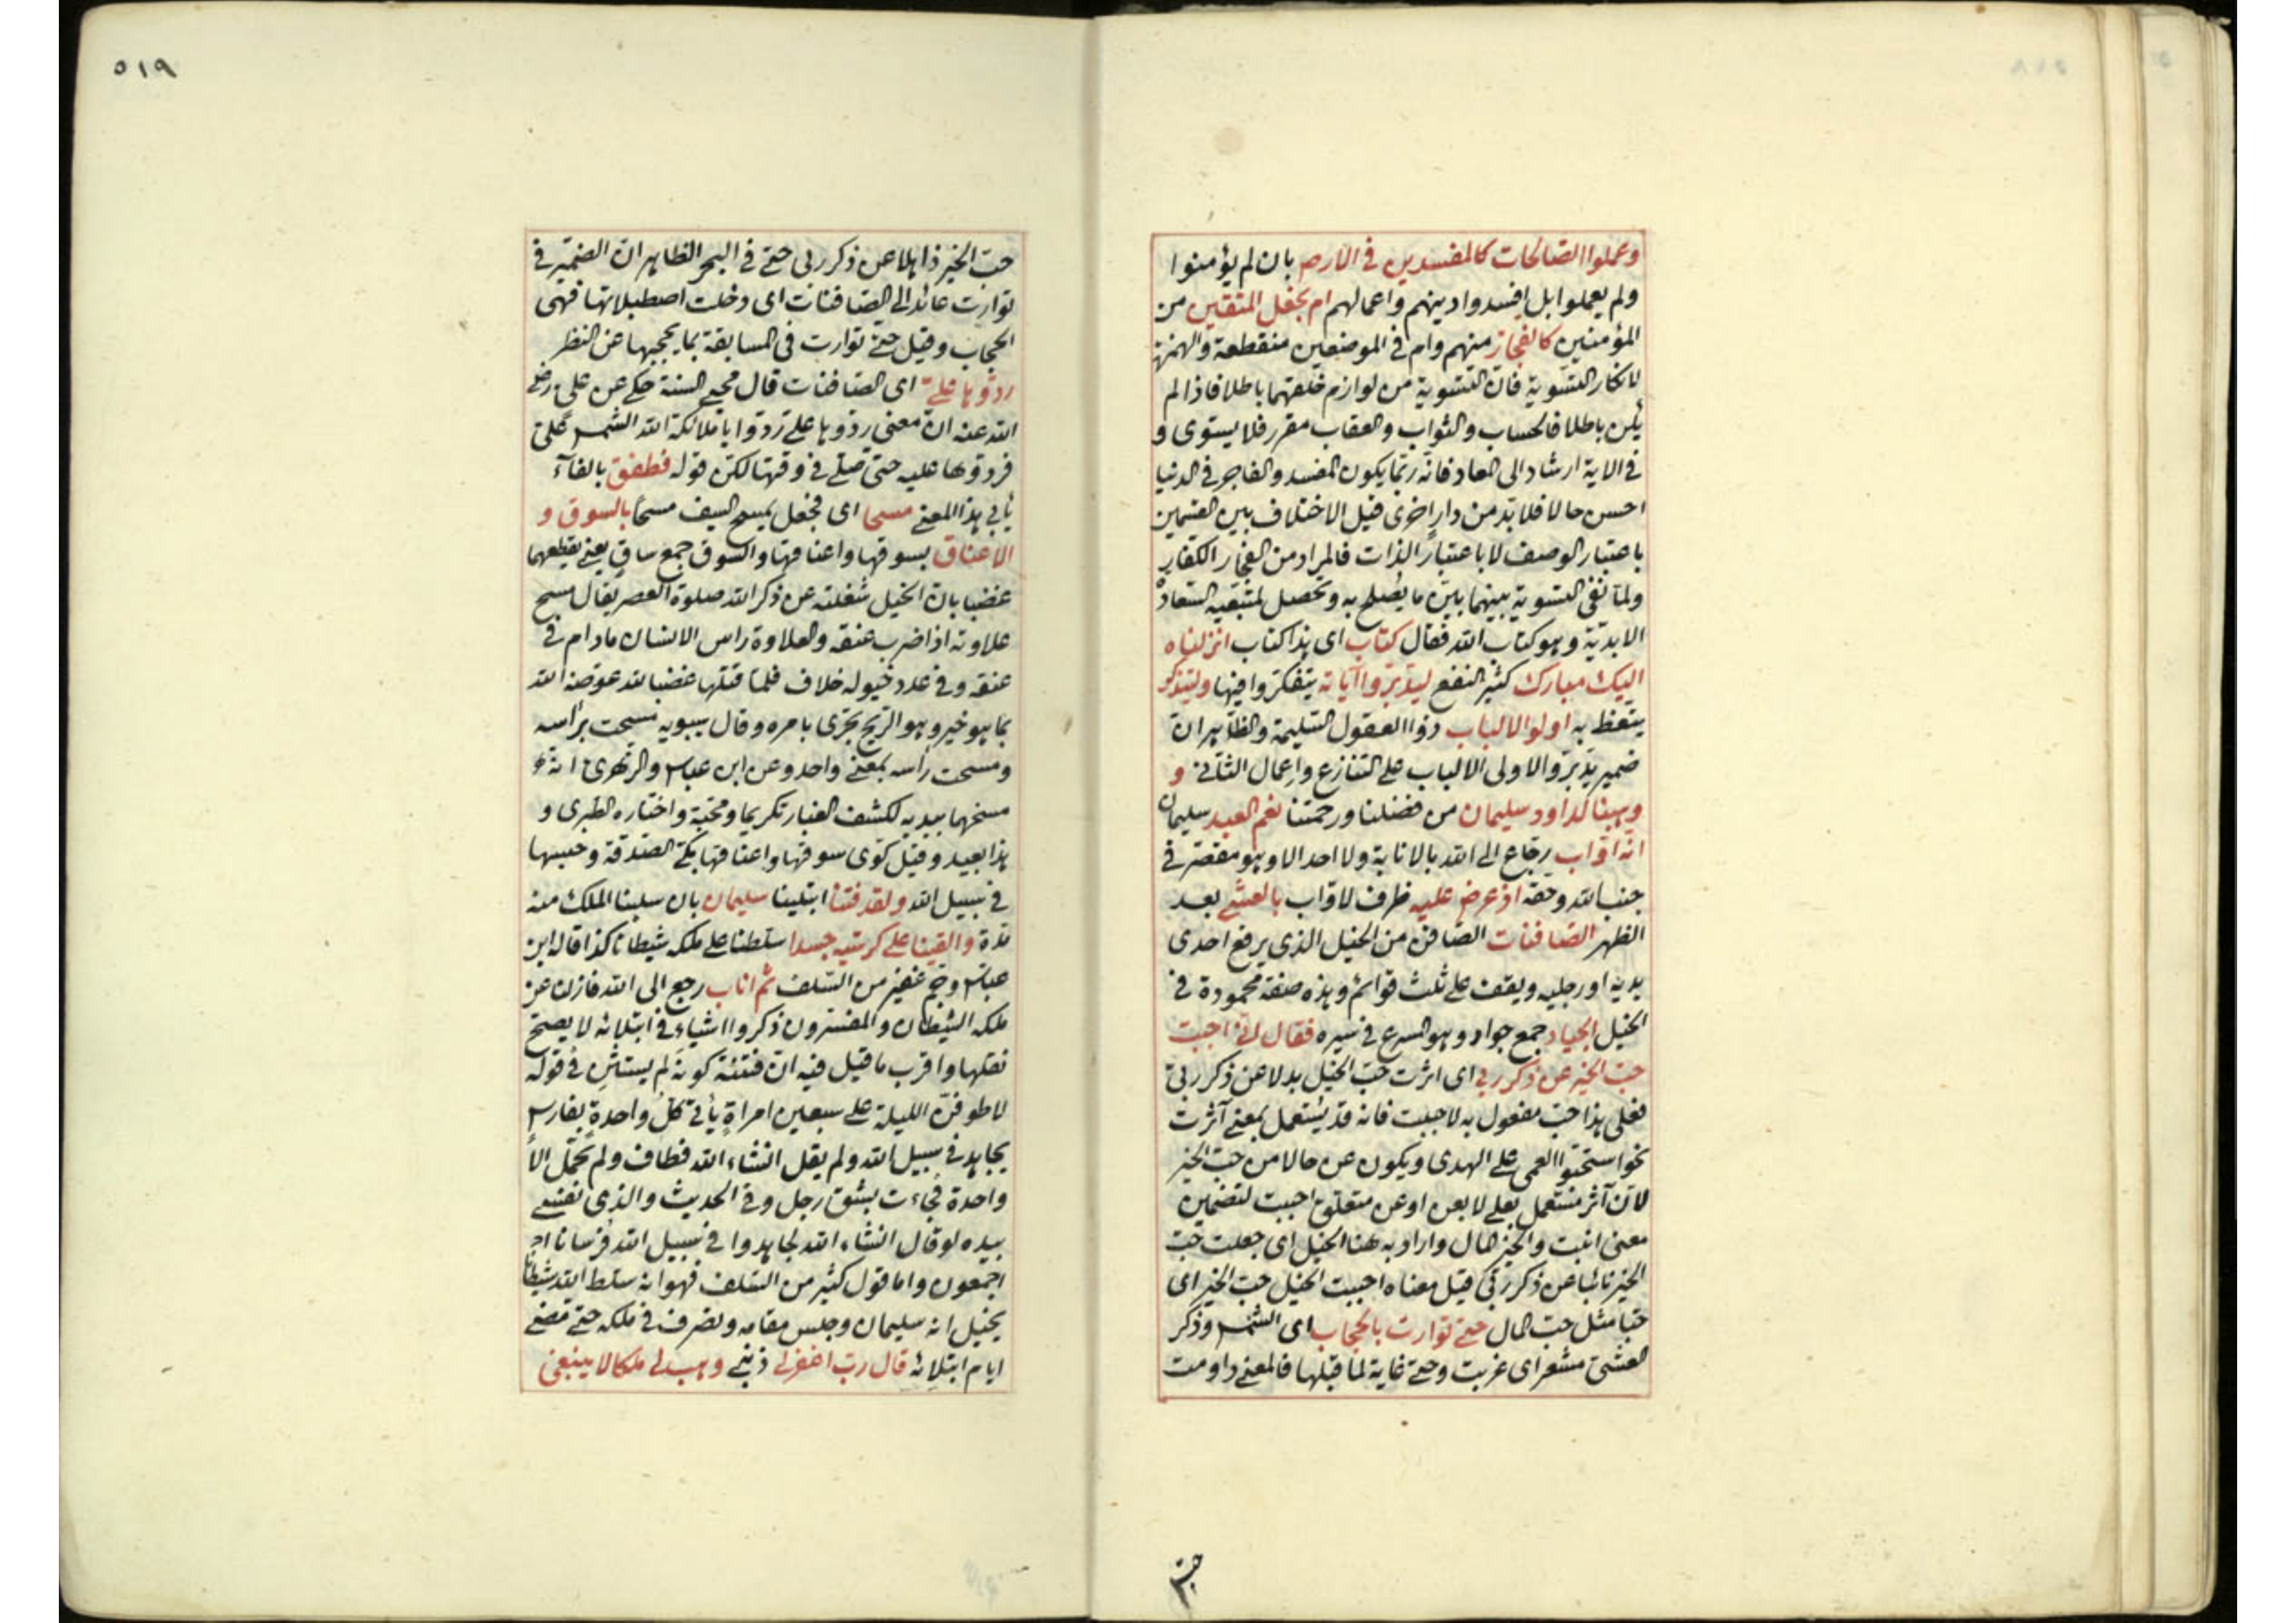 وعملوا الصالحات كالمفسدين في الارض بان لم يؤمنوا
ولم يعملوا بل افسدوا دينهم واعمالهم ام نجعل المتقين من
المؤمنين كالفجار منهم وام في الموضعين منقطعة والهمزة
لانكار التسوية فان التسوية من لوازم خلقهما باطلا فاذا لم
يكن باطلا فالحساب والثواب والعقاب مقرر فلا يستوى و
في الاية ارشاد الى المعاد فانه ربما يكون المفسد والفاجر في الدنيا
احسن حالا فلا بد من دار اخرى قيل الاختلاف بين القسمين
باعتبار الوصف لا باعتبار الذات فالمراد من الفجار الكفار
ولما نفى التسوية بينهما بين ما يصلح به وتحصل لمتبعيه السعادة
الابدية وهو كتاب الله فقال كتاب اى هذا كتاب انزلناه
اليك مبارك كثير النفع ليدبروا آياته يتفكروا فيها وليتذكر
يتعظ به اولوا الالباب ذوا العقول السليمة والظاهر ان
ضمير يدبروا الاولى الالباب على التنازع واعمال الثانى و
وهبنا لداود سليمان من فضلنا ورحمتنا نعم العبد سليمان
انه اواب رجاع الى الله بالانابة ولا احد الا وهو مقصر في
جنب الله وحقه اذ عرض عليه ظرف لاواب بالعشى بعد
الظهر الصافنات الصافن من الخيل الذى يرفع احدى
يديه او رجليه ويقف على ثلث قوائم وهذه صفة محمودة في
الخيل الجياد جمع جواد وهو السرع في سيره فقال انى احببت
حب الخير عن ذكر ربي اى اثرت حب الخيل بدلا عن ذكر ربي
فعلى هذا حب مفعول به لاحببت فانه قد يستعمل بمعنى آثرت
نحو استحبوا العمى على الهدى ويكون عن حالا من حب الخير
لان آثر مستعمل بعلى لا بعن او عن متعلق احببت لتضمين
معنى انبت والخير المال واراد به هنا الخيل اى جعلت حب
الخير نائبا عن ذكر ربي قيل معناه احببت الخيل حب الخير اى
حبا مثل حب المال حتى توارت بالحجاب اى الشمس وذكر
العشى مشعر اى غربت وحتى غاية لما قبلها فالمعنى داومت
حب
٥١٩
حب الخير ذاهلا عن ذكر ربى حتى في البحر الظاهر ان الضمير في
توارت عائد الى الصافنات اى دخلت اصطبلاتها فهى
الحجاب وقيل حتى توارت في المسابقة بما يحجبها عن النظر
ردوها على اى الصافنات قال محيى السنة حكى عن على رضى
الله عنه ان معنى ردوها على ردوا يا ملائكة الله الشمس على
فردوها عليه حتى صلى في وقتها لكن قوله فطفق بالفاء
يأبى هذا المعنى مسحا اى فجعل يمسح السيف مسحا بالسوق و
الاعناق بسوقها واعناقها والسوق جمع ساق يعنى يقطعهما
غضبا بان الخيل شغلته عن ذكر الله صلوة العصر يقال مسح
علاوته اذا ضرب عنقه والعلاوة راس الانسان مادام في
عنقه وفي عدد خيوله خلاف فلما قتلها غضبا لله عوضه الله
بما هو خير وهو الريح تجرى بامره وقال سيبويه مسحت براسه
ومسحت راسه بمعنى واحد وعن ابن عباس والزهرى انه
مسحهما بيديه لكشف الغبار تكريما ومحبة واختاره الطبرى و
هذا بعيد وقيل كوى سوقها واعناقها بكى الصدقة وحبسها
في سبيل الله ولقد فتنا ابتلينا سليمان بان سلبنا الملك منه
مدة والقينا على كرسيه جسدا سلطنا على ملكه شيطانا كذا قاله ابن
عباس وجم غفير من السلف ثم اناب رجع الى الله فازل عن
ملكه الشيطان والمفسرون ذكروا اشياء في ابتلائه لا يصح
نقلها واقرب ما قيل فيه ان فتنته كونه لم يستثن في قوله
لاطوفن الليلة على سبعين امراة يأتي كل واحدة بفارس
يجاهد في سبيل الله ولم يقل انشاء الله فطاف ولم تحمل الا
واحدة فجاءت بشق رجل وفي الحديث والذى نفسى
بيده لو قال انشاء الله لجاهدوا في سبيل الله فرسانا
اجمعون واما قول كثير من السلف فهو انه سلط الله شيطانا
يخيل انه سليمان وجلس مقامه وتصرف في ملكه حتى مضى
ايام ابتلائه قال رب اغفر لى ذنبى وهب لى ملكا لا ينبغى